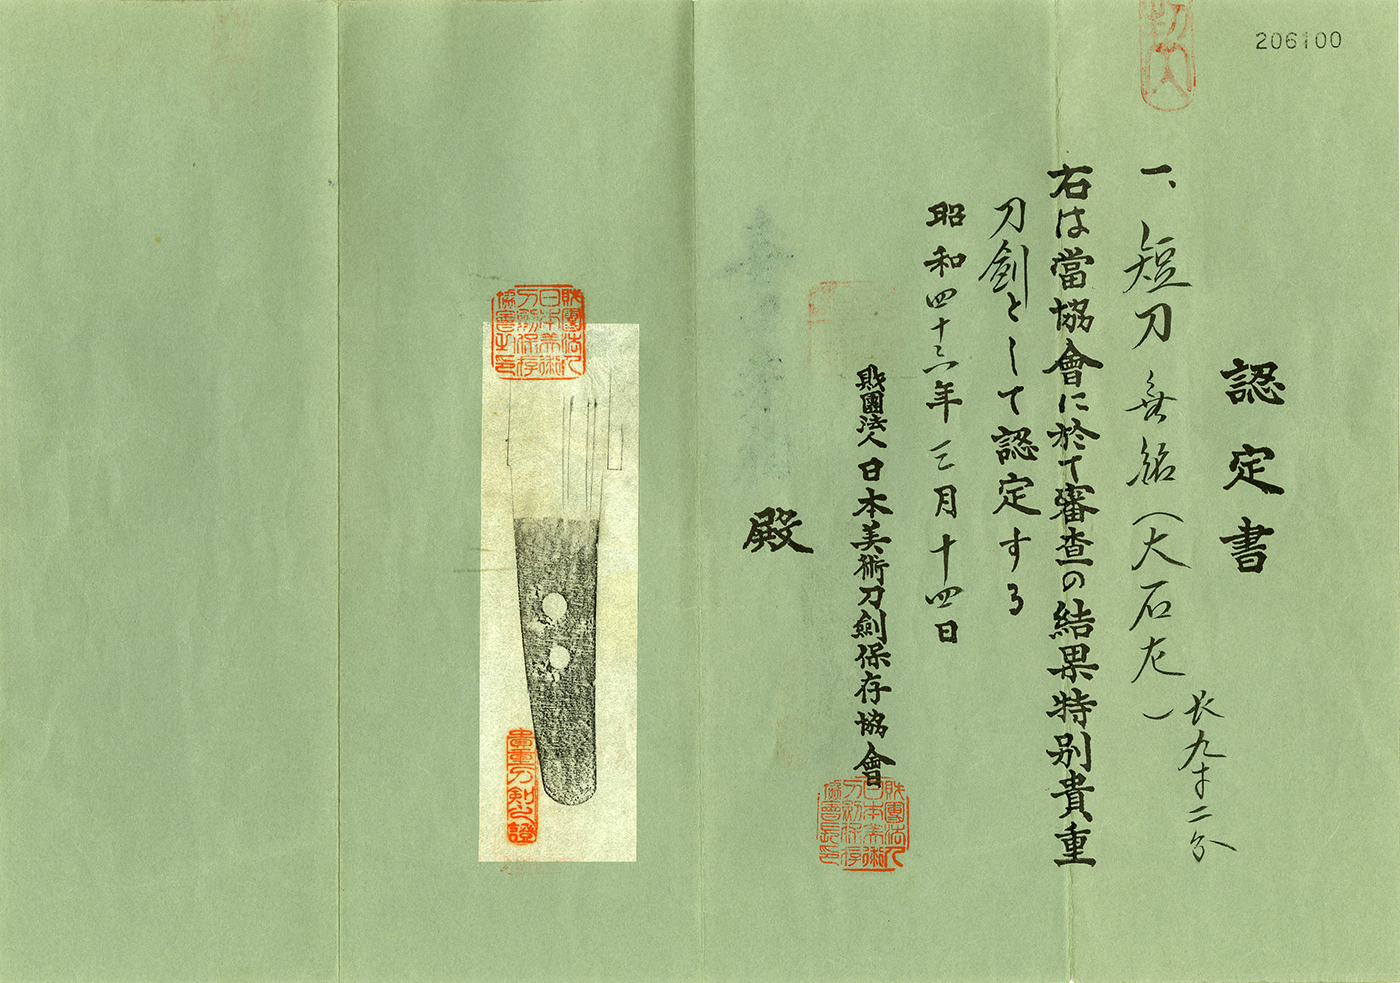 206100
認定書
一、短刀 無銘(大石左) 長九寸二分
右は當協會に於て審査の結果特別貴重
刀劍として認定する
昭和四十三年三月十四日
財團法人日本美術刀劍保存協會
殿
財團法人
日本美術
刀劍保存
協會長印
財團法人
日本美術
刀劍保存
協會之印
貴重刀剣之證